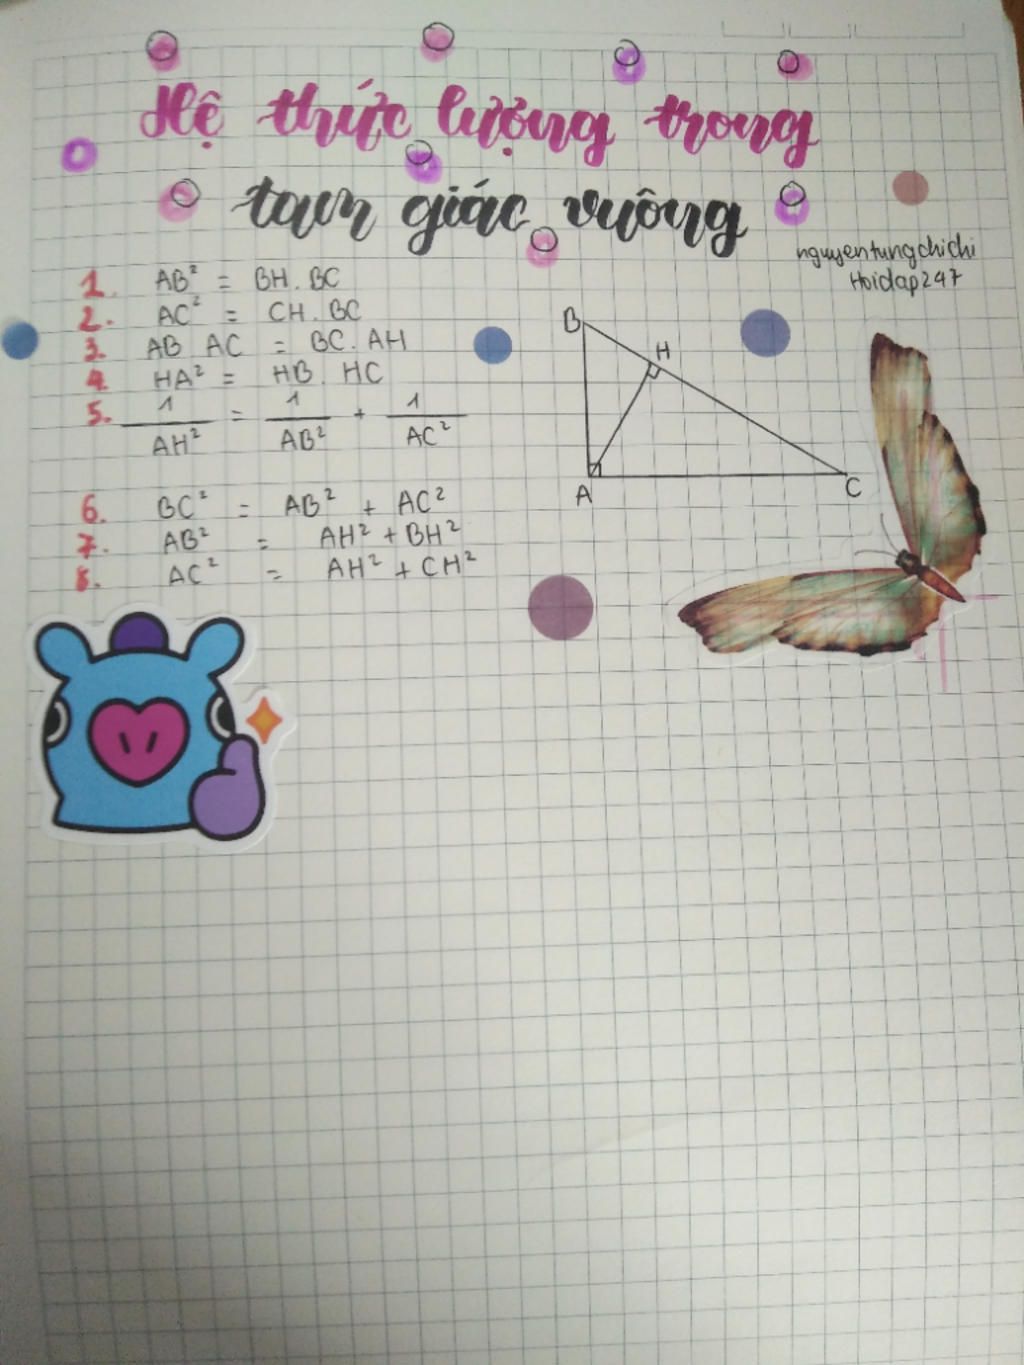 Hệ thức lượng trong
tam giác vuông
nguyentungchichi
Hoidap247
1. AB² = BH . BC
2. AC² = CH . BC
3. AB AC = BC . AH
4. HA² = HB . HC
5. 1/AH² = 1/AB² + 1/AC²
6. BC² = AB² + AC²
7. AB² = AH² + BH²
8. AC² = AH² + CH²
B
H
A
C